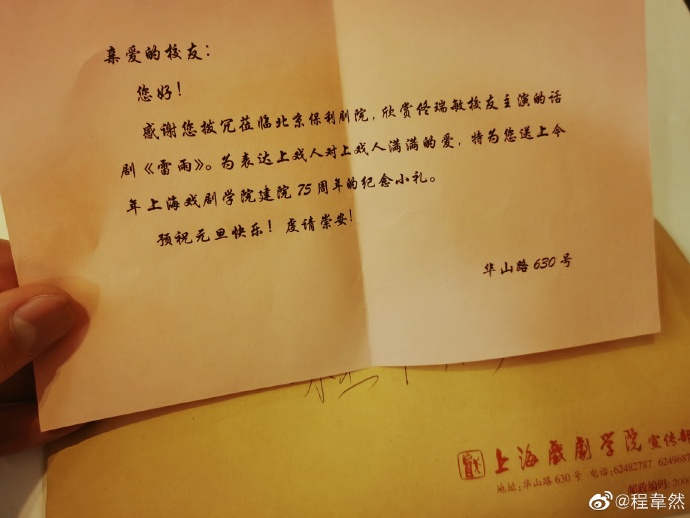 亲爱的校友：
您好！
感谢您拨冗莅临北京保利剧院，欣赏佟瑞敏校友主演的话
剧《雷雨》。为表达上戏人对上戏人满满的爱，特为您送上今
年上海戏剧学院建院75周年的纪念小礼。
预祝元旦快乐！虔请崇安！
华山路630号
上海戲劇学院宣传部
地址：华山路630号 电话：62482787 6249687
邮政编码：200
@程韋然